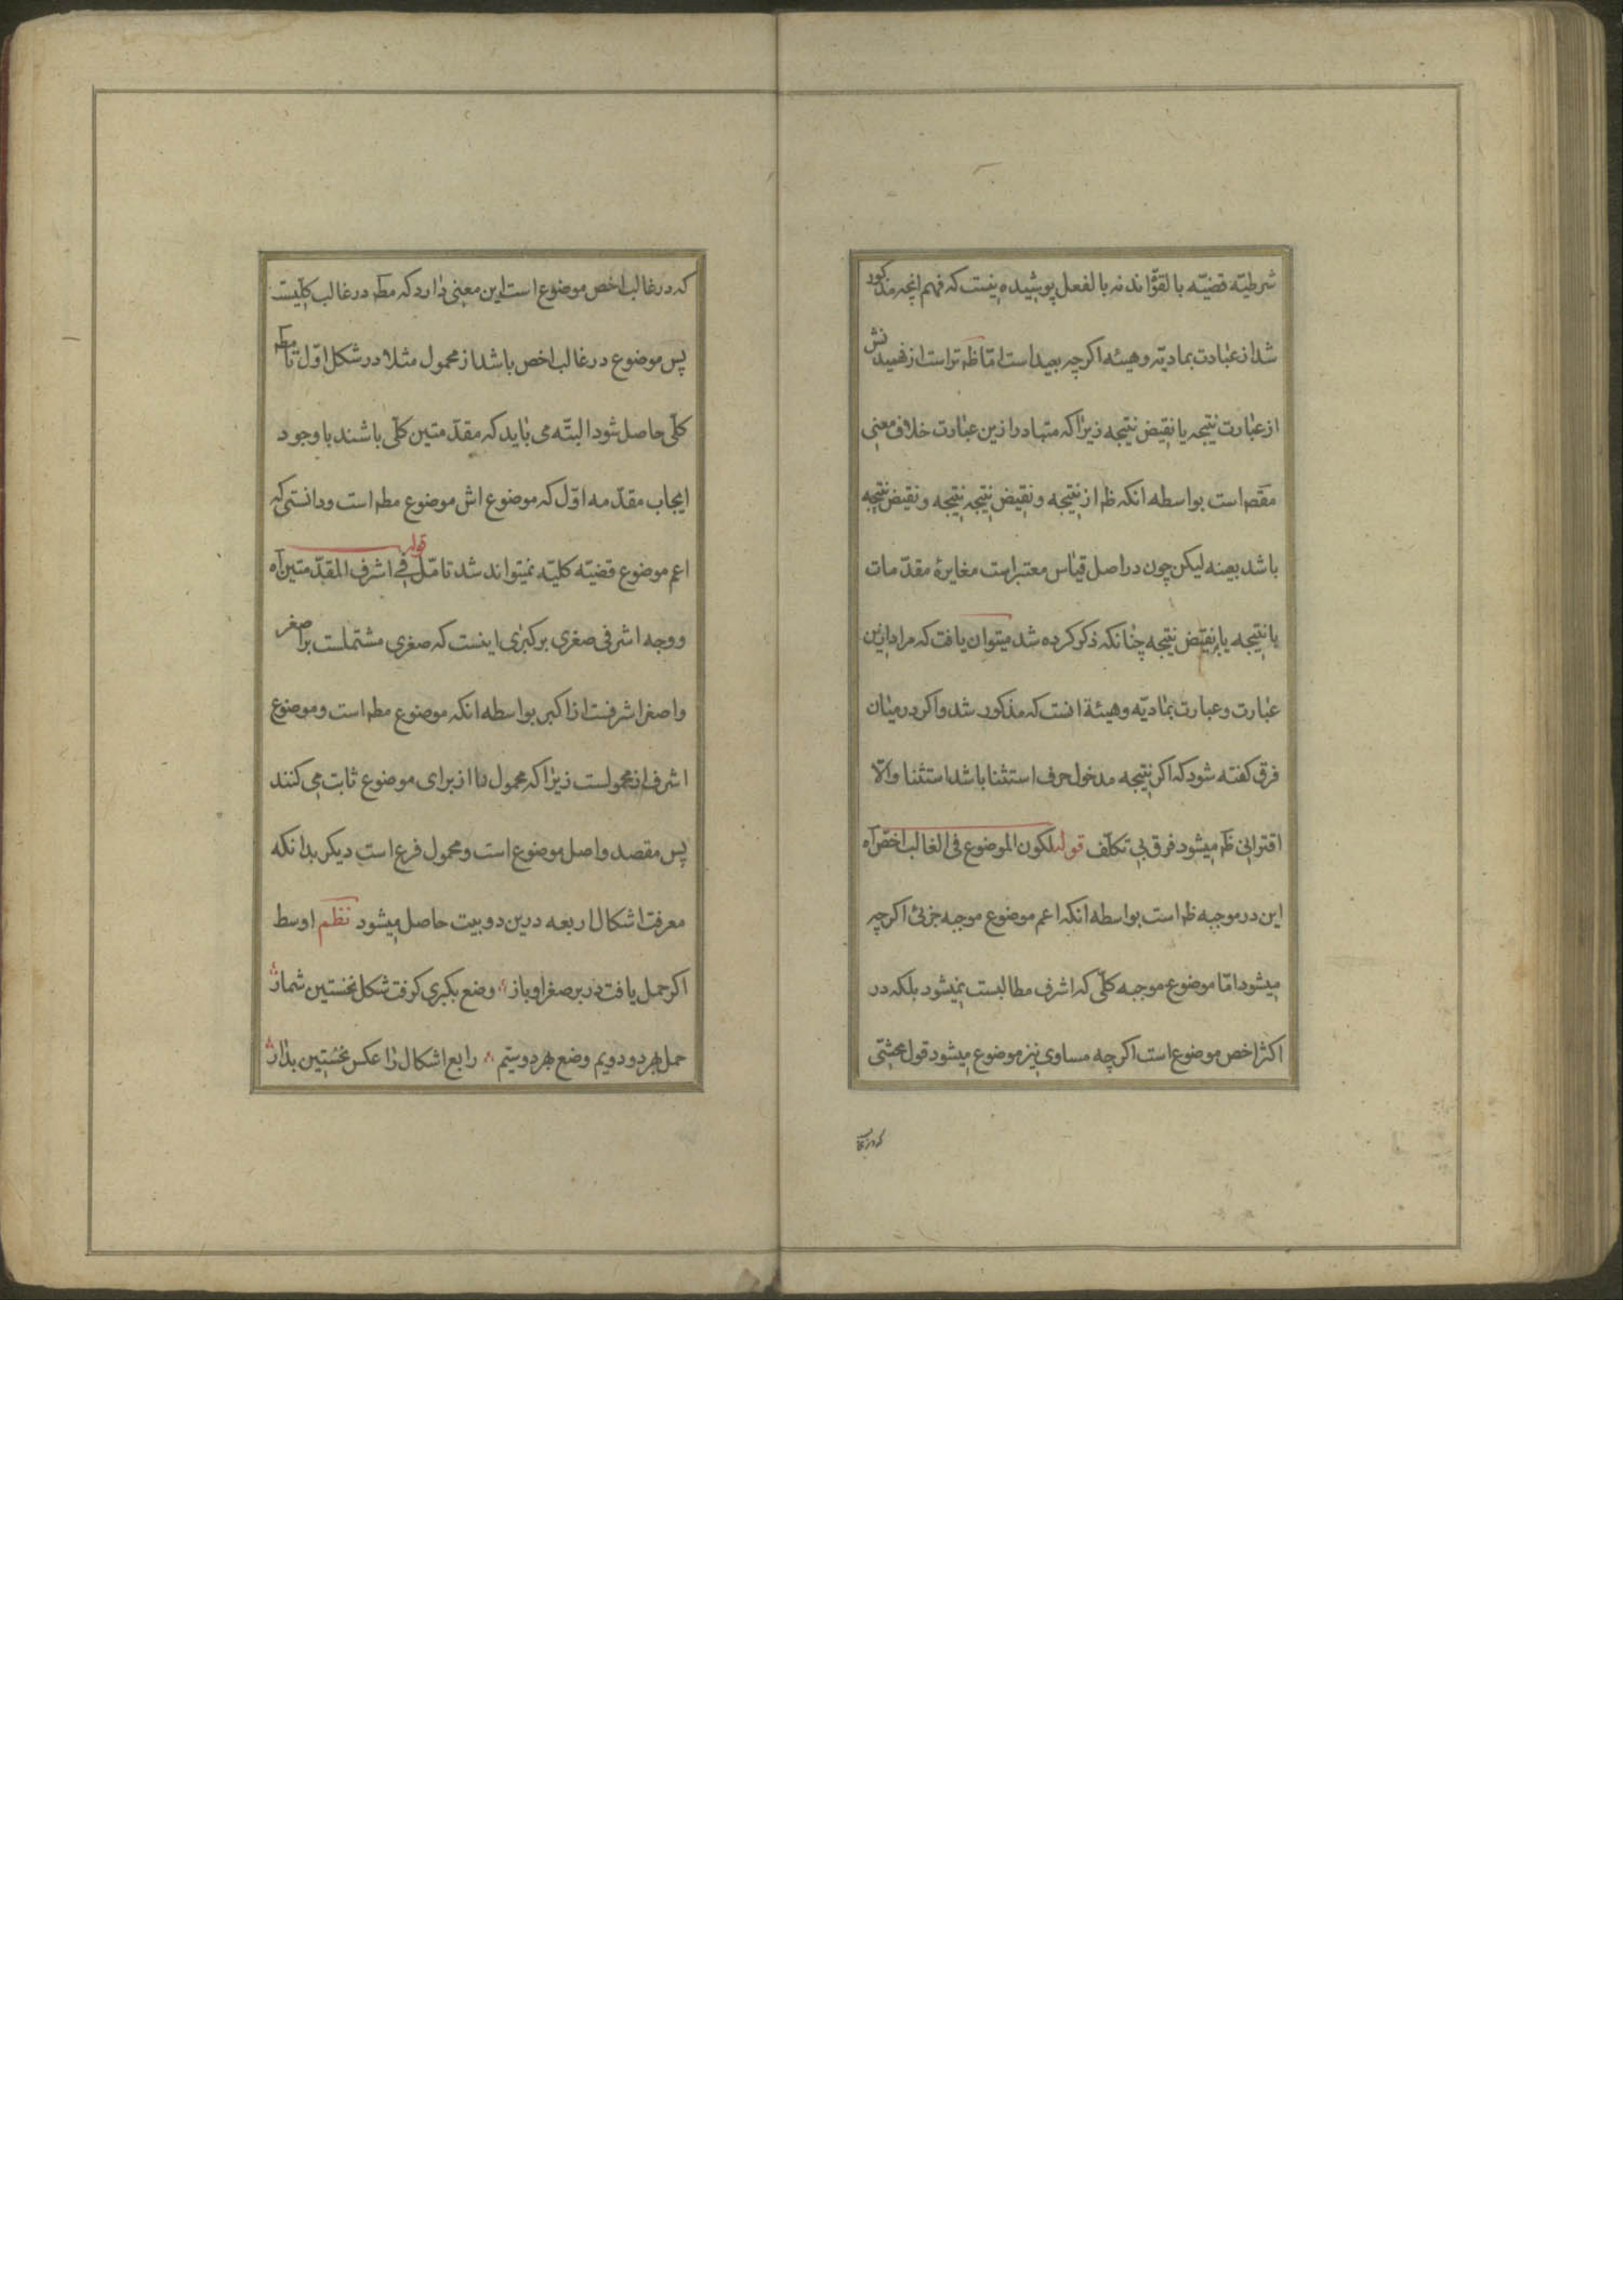 شرطیّه قضیّه بالقوّاند نه بالفعل پوشیده نیست که فهم انچه مذکور
شد از عبارت بمادیّه وهیئه اکرچه بعید است امّا ظهر تر است از فهمیدنش
از عبارت نتیجه یا نقیض نتیجه زیرا که متبادر ازین عبارت خلاف معنی
مقصٓ است بواسطه انکه ظهر از نتیجه ونقیض نتیجه نتیجه ونقیض نتیجه
باشد بعینه لیکن چون در اصل قیاس معتبر است مغایرة مقدّمات
با نتیجه یا بنقیض نتیجه چنانکه ذکر کرده شد میتوان یافت که مراد ازین
عبارت وعبارت بمادیّه وهیئة انست که مذکور شد واکر در میان
فرق کفته شود که اکر نتیجه مدخول حرف استثنا باشد استثنا والّا
اقترانی ظهر میشود فرق بی تکلّف قوله لکون الموضوع فی الغالب اخصّ آه
این در موجبه ظهر است بواسطه انکه اعم موضوع موجبه جزئی اکرچه
میشود امّا موضوع موجبه کلّی که اشرف مطالبست نمیشود بلکه در
اکثر اخص موضوع است اکرچه مساوی نیز موضوع میشود قول محشّی
که در غالب
که در غالب اخص موضوع است این معنی دارد که مطٓ در غالب کلّیست
پس موضوع در غالب اخص باشد از محمول مثلا در شکل اوّل تا مطٓ
کلّی حاصل شود البتّه می باید که مقدّمتین کلّی باشند با وجود
ایجاب مقدّمه اوّل که موضوع اش موضوع مطهر است ودانستی که
اعم موضوع قضیّه کلیّه نمیتواند شد تامّل قوله فی اشرف المقدّمتین آه
ووجه اشرفی صغری بر کبری اینست که صغری مشتملست بر اصغر
واصغر اشرفست از اکبر بواسطه انکه موضوع مطهر است وموضوع
اشرف از محمولست زیرا که محمول را از برای موضوع ثابت می کنند
پس مقصد واصل موضوع است ومحمول فرع است دیکر بدانکه
معرفت اشکال اربعه درین دو بیت حاصل میشود نظم اوسط
اکر حمل یافت در بر صغرا وباز وضع بکبری کرفت شکل نخستین شمار
حمل بهر دو دویم وضع بهر دو سیّم رابع اشکال را عکس نخستین بدار